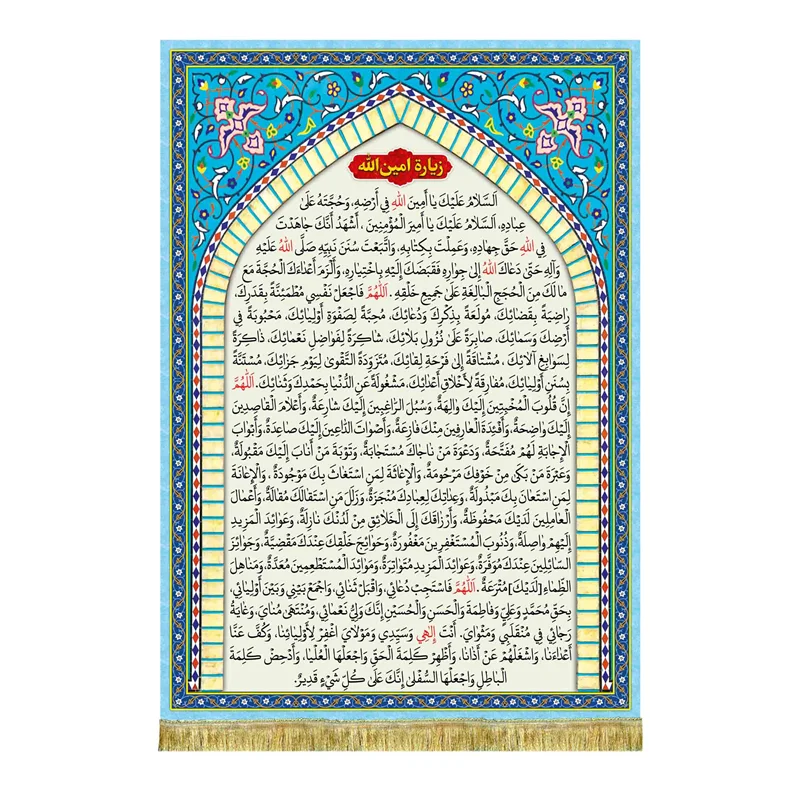 زيارة امين الله
اَلسَّلامُ عَلَيْكَ يا أَمِينَ اللهِ فِي أَرْضِهِ، وَحُجَّتَهُ عَلىٰ
عِبادِهِ، اَلسَّلامُ عَلَيْكَ يا أَمِيرَ الْمُؤْمِنِينَ، أَشْهَدُ أَنَّكَ جاهَدْتَ
فِي اللهِ حَقَّ جِهادِهِ، وَعَمِلْتَ بِكِتابِهِ، وَاتَّبَعْتَ سُنَنَ نَبِيِّهِ صَلَّى اللهُ عَلَيْهِ
وَآلِهِ حَتّىٰ دَعاكَ اللهُ إِلىٰ جِوارِهِ فَقَبَضَكَ إِلَيْهِ بِاخْتِيارِهِ، وَأَلْزَمَ أَعْداءَكَ الْحُجَّةَ مَعَ
مالَكَ مِنَ الْحُجَجِ الْبالِغَةِ عَلىٰ جَمِيعِ خَلْقِهِ. اَللّهُمَّ فَاجْعَلْ نَفْسِي مُطْمَئِنَّةً بِقَدَرِكَ،
راضِيَةً بِقَضائِكَ، مُولَعَةً بِذِكْرِكَ وَدُعائِكَ، مُحِبَّةً لِصَفْوَةِ أَوْلِيائِكَ، مَحْبُوبَةً فِي
أَرْضِكَ وَسَمائِكَ، صابِرَةً عَلىٰ نُزُولِ بَلائِكَ، شاكِرَةً لِفَواضِلِ نَعْمائِكَ، ذاكِرَةً
لِسَوابِغِ آلائِكَ، مُشْتاقَةً إِلىٰ فَرْحَةِ لِقائِكَ، مُتَزَوِّدَةً التَّقْوىٰ لِيَوْمِ جَزائِكَ، مُسْتَنَّةً
بِسُنَنِ أَوْلِيائِكَ، مُفارِقَةً لِأَخْلاقِ أَعْدائِكَ، مَشْغُولَةً عَنِ الدُّنْيا بِحَمْدِكَ وَثَنائِكَ. اَللّهُمَّ
إِنَّ قُلُوبَ الْمُخْبِتِينَ إِلَيْكَ والِهَةٌ، وَسُبُلَ الرّاغِبِينَ إِلَيْكَ شارِعَةٌ، وَأَعْلامَ الْقاصِدِينَ
إِلَيْكَ واضِحَةٌ، وَأَفْئِدَةَ الْعارِفِينَ مِنْكَ فازِعَةٌ، وَأَصْواتَ الدّاعِينَ إِلَيْكَ صاعِدَةٌ، وَأَبْوابَ
الْإِجابَةِ لَهُمْ مُفَتَّحَةٌ، وَدَعْوَةَ مَنْ ناجاكَ مُسْتَجابَةٌ، وَتَوْبَةَ مَنْ أَنابَ إِلَيْكَ مَقْبُولَةٌ،
وَعَبْرَةَ مَنْ بَكىٰ مِنْ خَوْفِكَ مَرْحُومَةٌ، وَالْإِغاثَةَ لِمَنِ اسْتَغاثَ بِكَ مَوْجُودَةٌ، وَالْإِعانَةَ
لِمَنِ اسْتَعانَ بِكَ مَبْذُولَةٌ، وَعِداتِكَ لِعِبادِكَ مُنْجَزَةٌ، وَزَلَلَ مَنِ اسْتَقالَكَ مُقالَةٌ، وَأَعْمالَ
الْعامِلِينَ لَدَيْكَ مَحْفُوظَةٌ، وَأَرْزاقَكَ إِلَى الْخَلائِقِ مِنْ لَدُنْكَ نازِلَةٌ، وَعَوائِدَ الْمَزِيدِ
إِلَيْهِمْ واصِلَةٌ، وَذُنُوبَ الْمُسْتَغْفِرِينَ مَغْفُورَةٌ، وَحَوائِجَ خَلْقِكَ عِنْدَكَ مَقْضِيَّةٌ، وَجَوائِزَ
السّائِلِينَ عِنْدَكَ مُوَفَّرَةٌ، وَعَوائِدَ الْمَزِيدِ مُتَواتِرَةٌ، وَمَوائِدَ الْمُسْتَطْعِمِينَ مُعَدَّةٌ، وَمَناهِلَ
الظِّماءِ [لَدَيْكَ] مُتْرَعَةٌ. اَللّهُمَّ فَاسْتَجِبْ دُعائِي، وَاقْبَلْ ثَنائِي، وَاجْمَعْ بَيْنِي وَبَيْنَ أَوْلِيائِي،
بِحَقِّ مُحَمَّدٍ وَعَلِيٍّ وَفاطِمَةَ وَالْحَسَنِ وَالْحُسَيْنِ إِنَّكَ وَلِيُّ نَعْمائِي، وَمُنْتَهىٰ مُنايَ، وَغايَةُ
رَجائِي فِي مُنْقَلَبِي وَمَثْوايَ. أَنْتَ إِلٰهِي وَسَيِّدِي وَمَوْلايَ اغْفِرْ لِأَوْلِيائِنا، وَكُفَّ عَنّا
أَعْداءَنا، وَاشْغَلْهُمْ عَنْ أَذانا، وَأَظْهِرْ كَلِمَةَ الْحَقِّ وَاجْعَلْهَا الْعُلْيا، وَأَدْحِضْ كَلِمَةَ
الْباطِلِ وَاجْعَلْهَا السُّفْلىٰ إِنَّكَ عَلىٰ كُلِّ شَيْءٍ قَدِيرٌ.